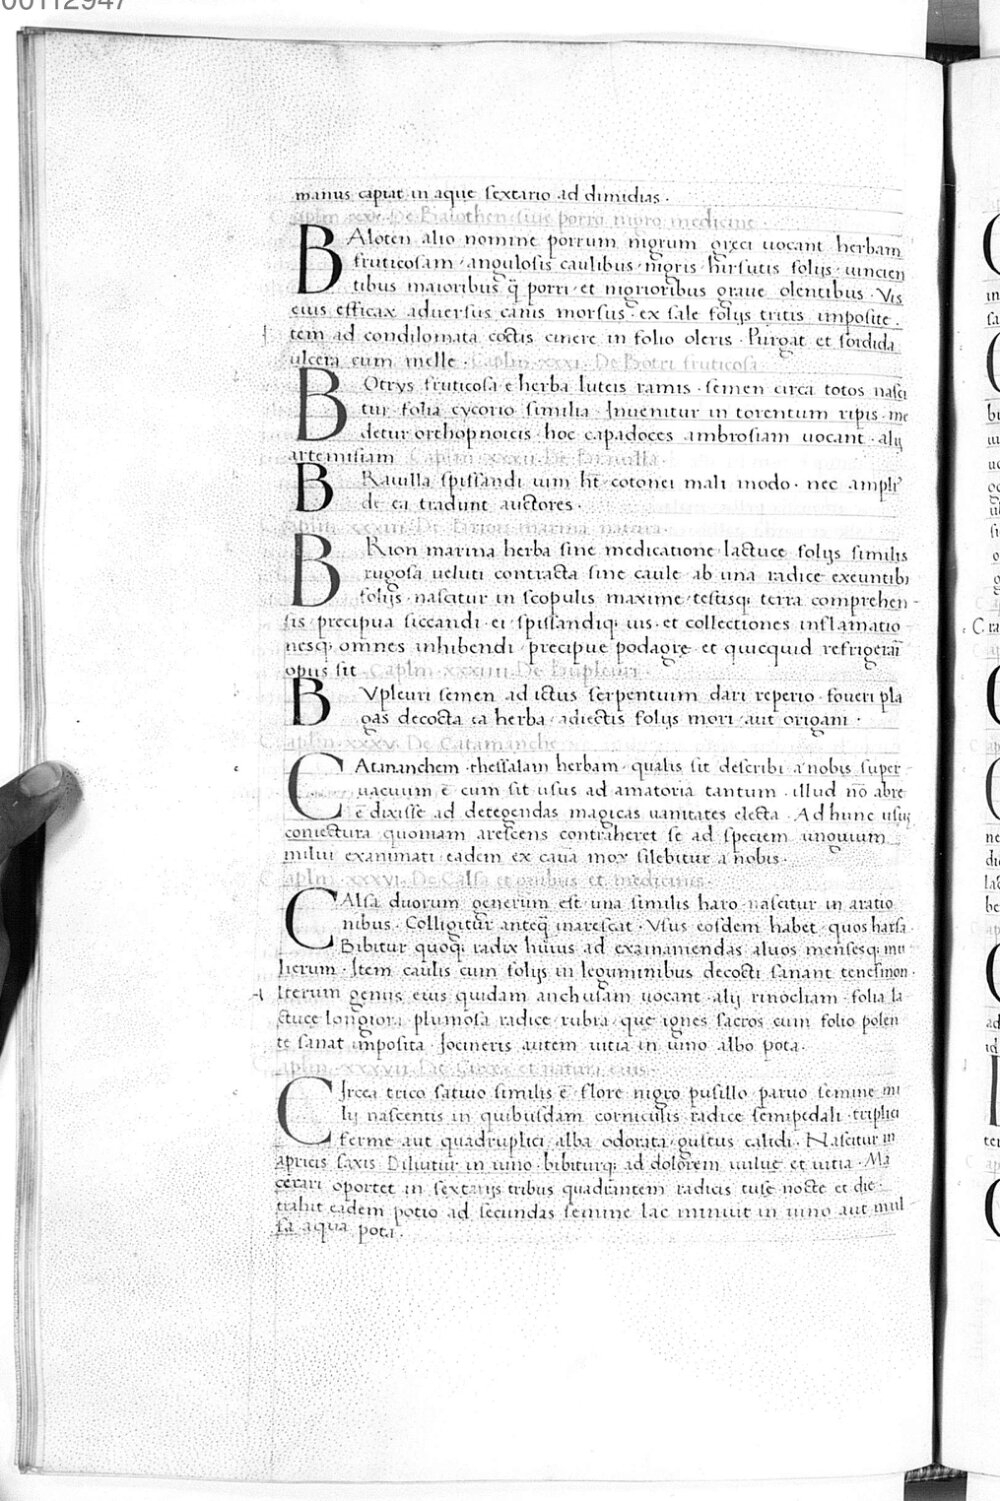 manus capiat in aque sextario ad dimidias ·
Caplm · xxx · De Balothen siue porro nigro medicine ·
BAloten alio nomine porrum nigrum greci uocant herbam
fruticosam · angulosis caulibus · nigris · hirsutis folijs · uincien
tibus maioribus q̃ porri · et nigrioribus graue olentibus · Vis
eius efficax aduersus canis morsus · ex sale folijs tritis imposite ·
tem ad condilomata coctis cinere in folio oleris · Purgat et sordida
ulcera cum melle · Caplm · xxxi · De Botri fruticosa
BOtrys fruticosa ẽ herba luteis ramis · semen circa totos nasci
tur · folia cycorio similia · Inuenitur in torentum ripis · me
detur orthopnoicis · hoc capadoces ambrosiam uocant · alij
artemisiam Caplm · xxxii · De Brauilla ·
BRauilla spissandi uim hẽt · cotonei mali modo · nec ampli⁹
de ea tradunt auctores ·
Caplm · xxxiii · De Brion marina natura ·
BRion marina herba sine medicatione lactuce folijs similis
rugosa ueluti contracta sine caule ab una radice exeuntibꝫ
folijs · nascitur in scopulis maxime · testisqꝫ terra comprehen-
sis · precipua siccandi · ei spissandiqꝫ uis · et collectiones inflamatio
nesqꝫ omnes inhibendi · precipue podagre · et quicquid refrigerari
opus sit · Caplm · xxxiiii · De Bupleuri ·
BVpleuri semen ad ictus serpentuum dari reperio · foueri pla
gas decocta ea herba · adiectis folijs mori · aut origani ·
Caplm · xxxv · De Catamanche
CAtananchem · thessalam herbam · qualis sit describi a nobis super
uacuum ẽ cum sit usus ad amatoria tantum · illud nõ abre
ẽ dixisse ad detegendas magicas uanitates electa · Ad hunc usum
coniectura quoniam arescens contraheret se ad speciem unguium
milui exanimati · eadem ex causa mox silebitur a nobis ·
Caplm · xxxvi · De Calsa et genibus et medicinis ·
CAlsa duorum generum est · una similis haro · nascitur in aratio
nibus · Colligitur anteq̃ inarescat · Vsus eosdem habet · quos harsa ·
Bibitur quoqꝫ radix huius ad exainaniendas aluos mensesqꝫ mu
lierum · Item caulis cum folijs in leguminibus decocti sanant tenesmon ·
Iterum genus eius quidam anchusam uocant · alij rinocliam · folia la
ctuce longiora · plumosa radice · rubra · que ignes sacros cum folio polen
te sanat imposita · Iocineris autem uitia in uino albo pota ·
Caplm · xxxvii · De Circea et natura eius ·
CIrcea trico satiuo similis ẽ · flore nigro pusillo · paruo semine mi
lij nascentis in quibusdam corniculis · radice semipedali · triplici
ferme aut quadruplici · alba odorata · gustus calidi · Nascitur in
apricis saxis · Diluitur in uino · bibiturqꝫ ad dolorem uulue et uitia · Ma
cerari oportet in sextarijs tribus quadrantem radicis tuse nocte et die ·
trahit eadem potio ad secundas semine lac minuit in uino aut mul
sa aqua pota ·